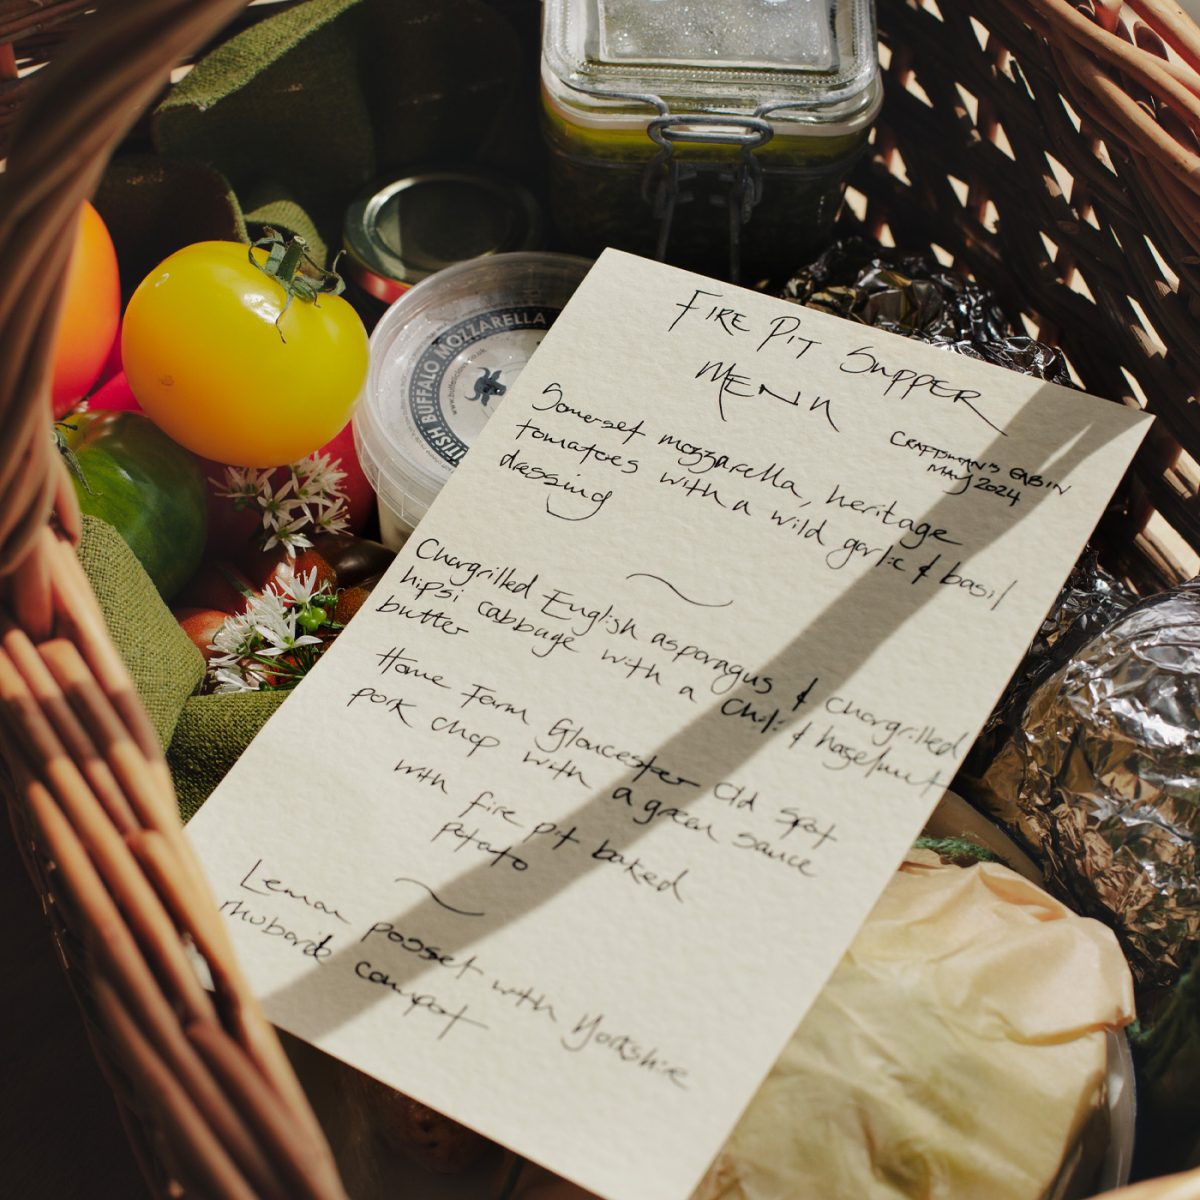 FIRE PIT SUPPER
MENU
CRAFTSMAN'S CABIN
MAY 2024
Somerset mozzarella, heritage
tomatoes with a wild garlic & basil
dressing
Chargrilled English asparagus & chargrilled
hipsi cabbage with a chili & hazelnut
butter
Home Farm Gloucester Old Spot
pork chop with a green sauce
with fire pit baked
potato
Lemon posset with Yorkshire
rhubarb compot
BUFFALO MOZZARELLA